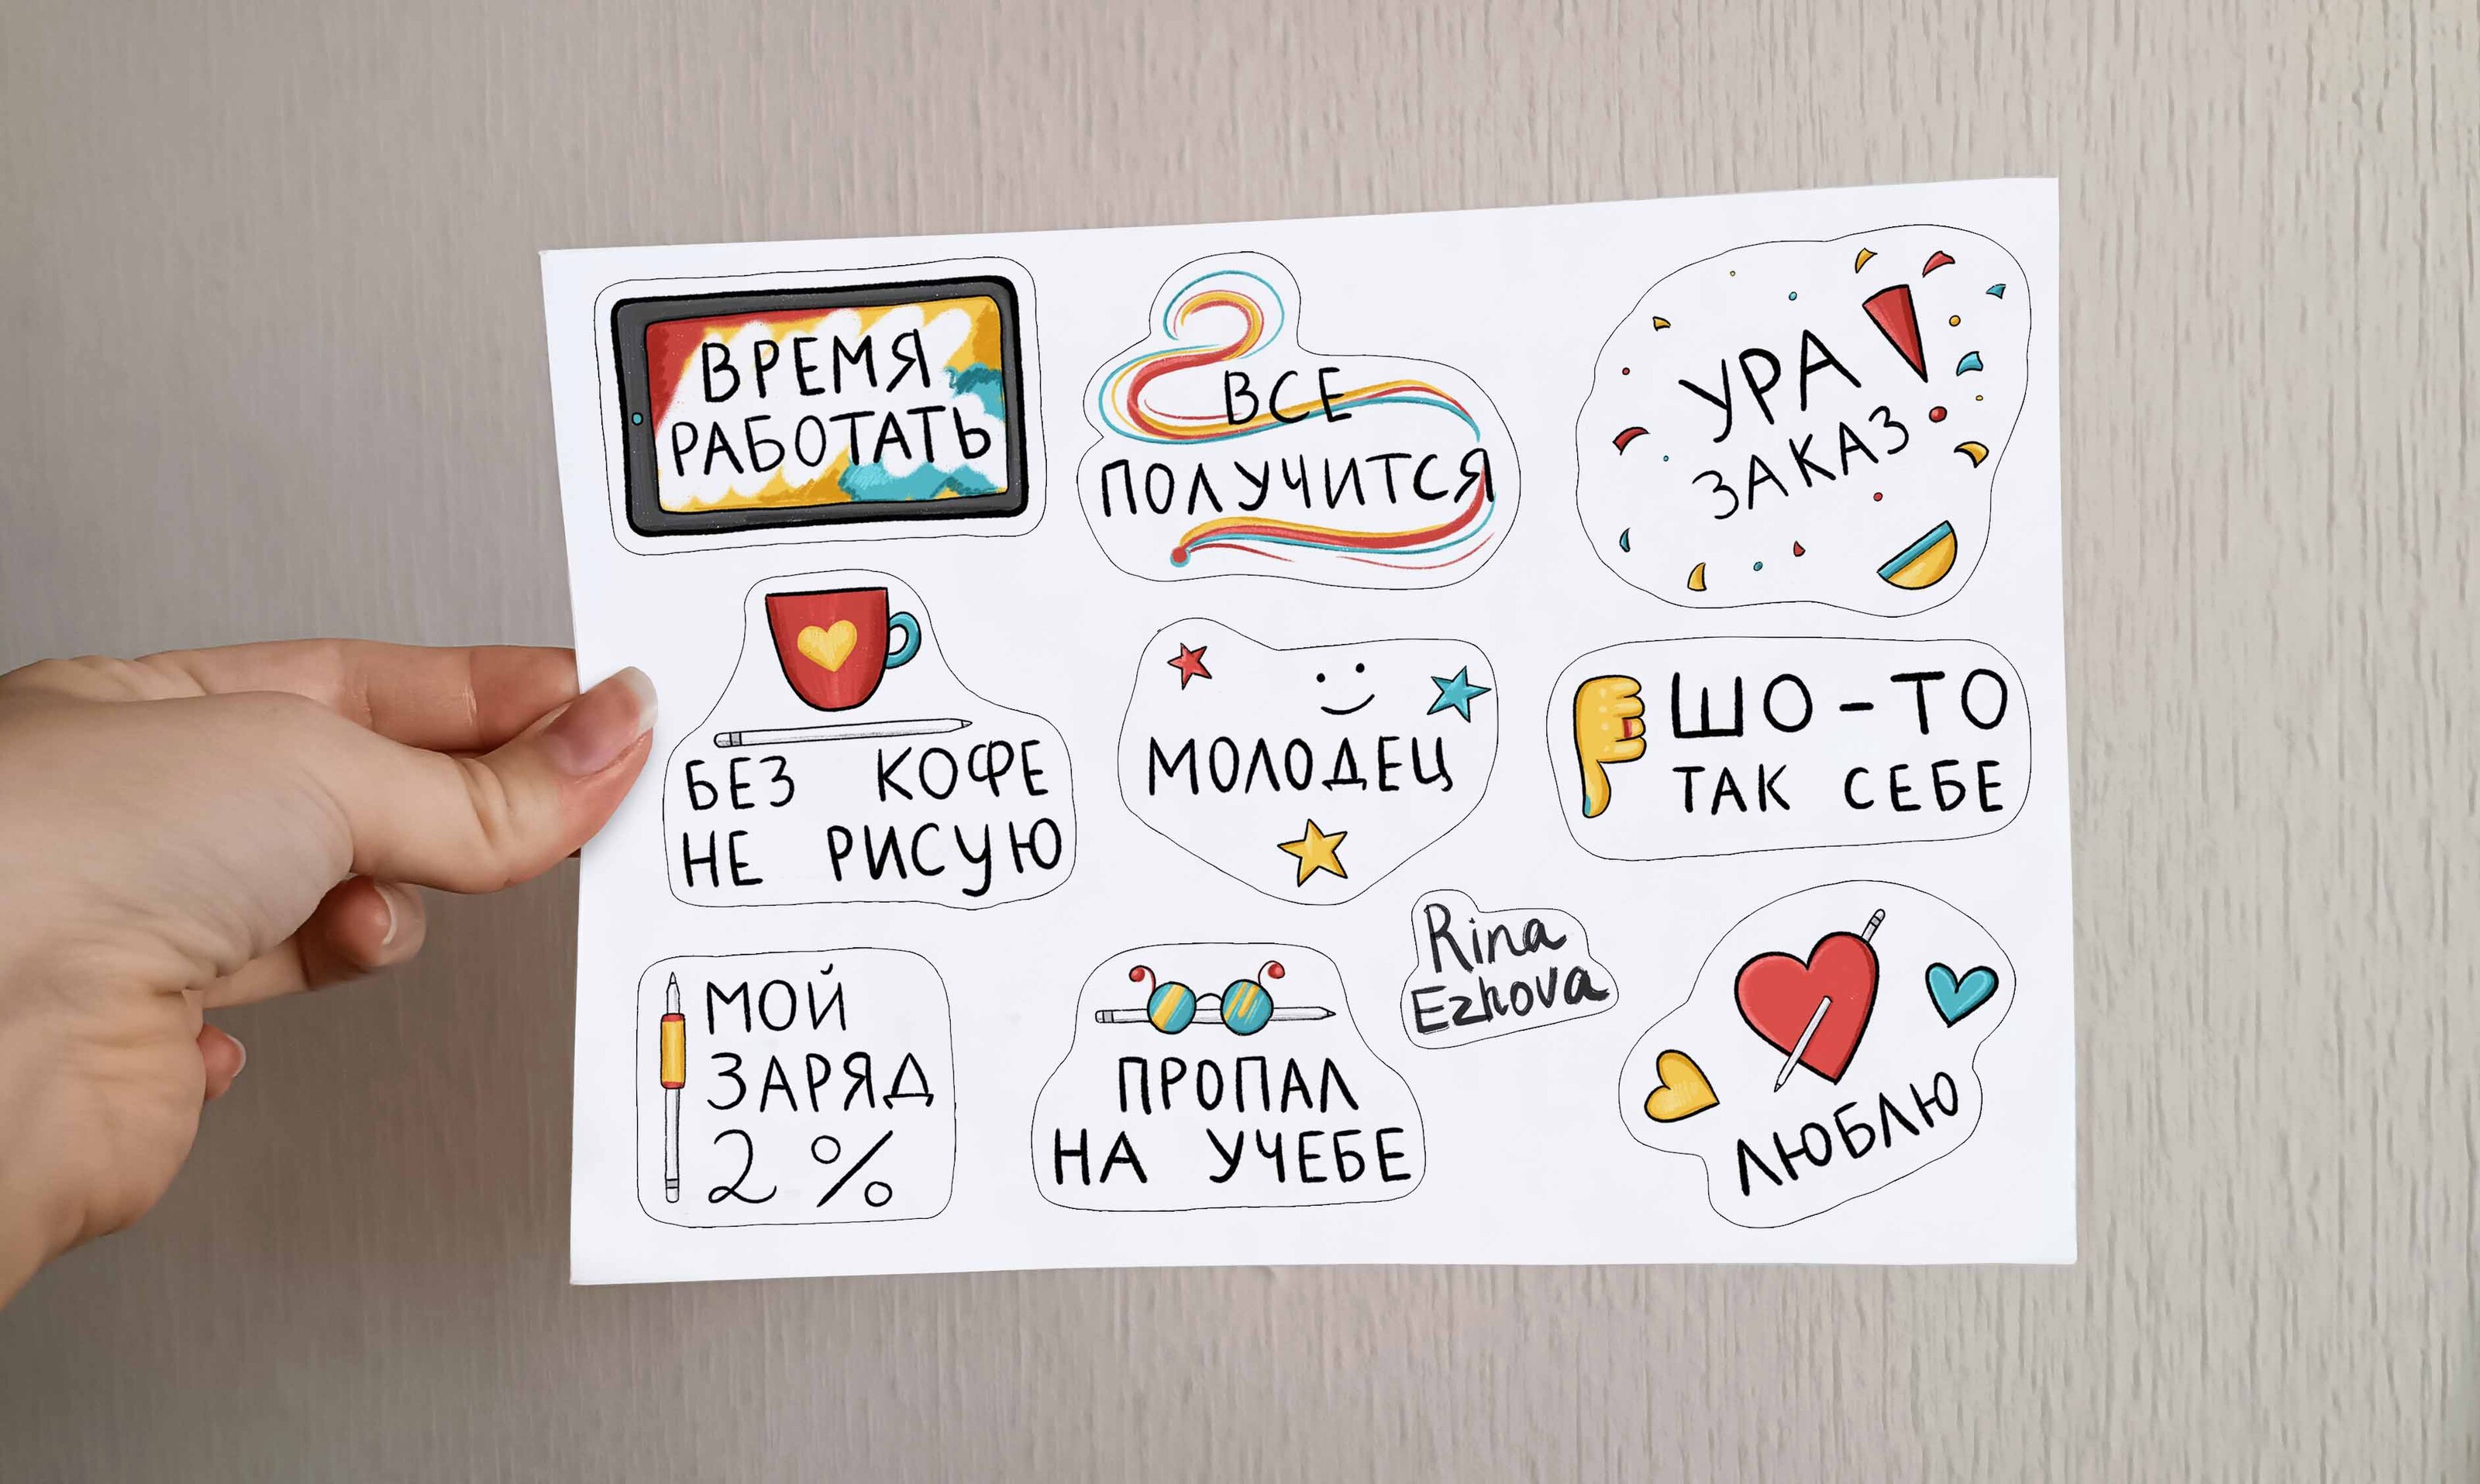 ВРЕМЯ
РАБОТАТЬ
ВСЕ
ПОЛУЧИТСЯ
УРА
ЗАКАЗ
БЕЗ КОФЕ
НЕ РИСУЮ
МОЛОДЕЦ
ШО-ТО
ТАК СЕБЕ
МОЙ
ЗАРЯД
2 %
ПРОПАЛ
НА УЧЕБЕ
Rina
Ezhova
ЛЮБЛЮ